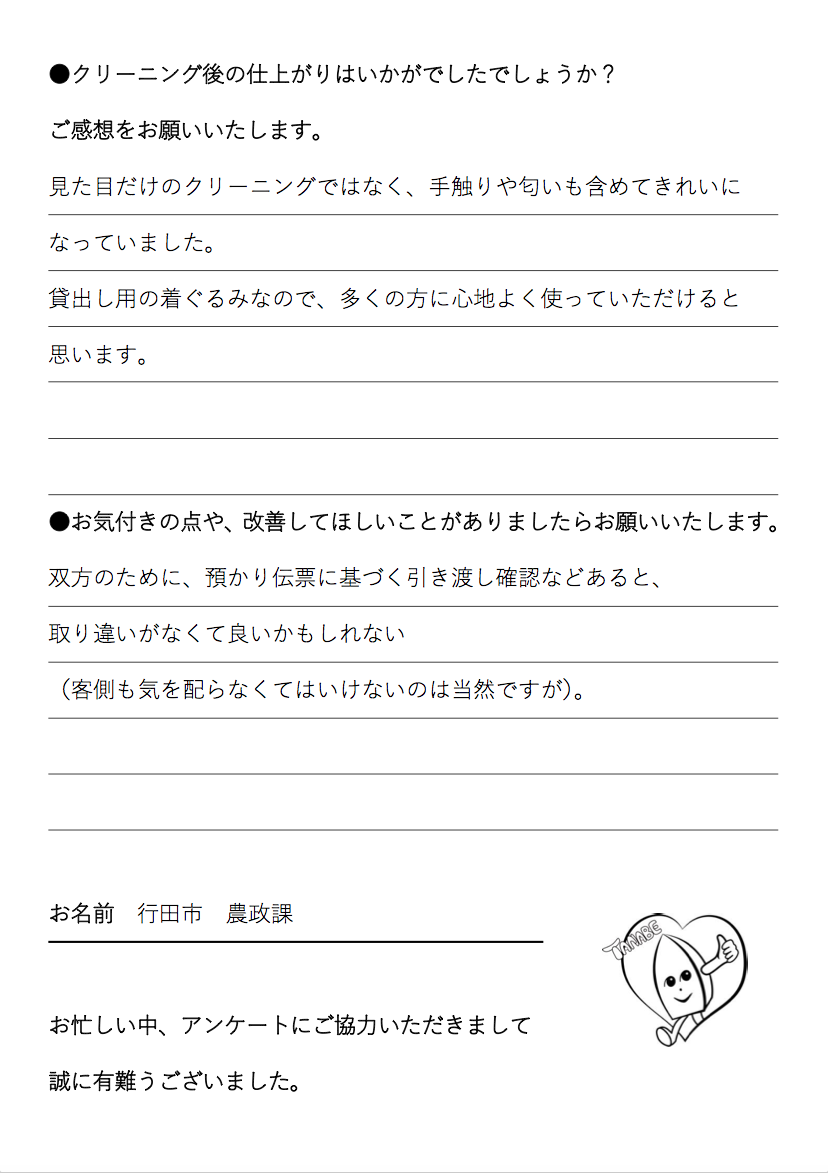 ●クリーニング後の仕上がりはいかがでしたでしょうか？
ご感想をお願いいたします。
見た目だけのクリーニングではなく、手触りや匂いも含めてきれいに
なっていました。
貸出し用の着ぐるみなので、多くの方に心地よく使っていただけると
思います。
●お気付きの点や、改善してほしいことがありましたらお願いいたします。
双方のために、預かり伝票に基づく引き渡し確認などあると、
取り違いがなくて良いかもしれない
（客側も気を配らなくてはいけないのは当然ですが）。
お名前　行田市　農政課
TANABE
お忙しい中、アンケートにご協力いただきまして
誠に有難うございました。